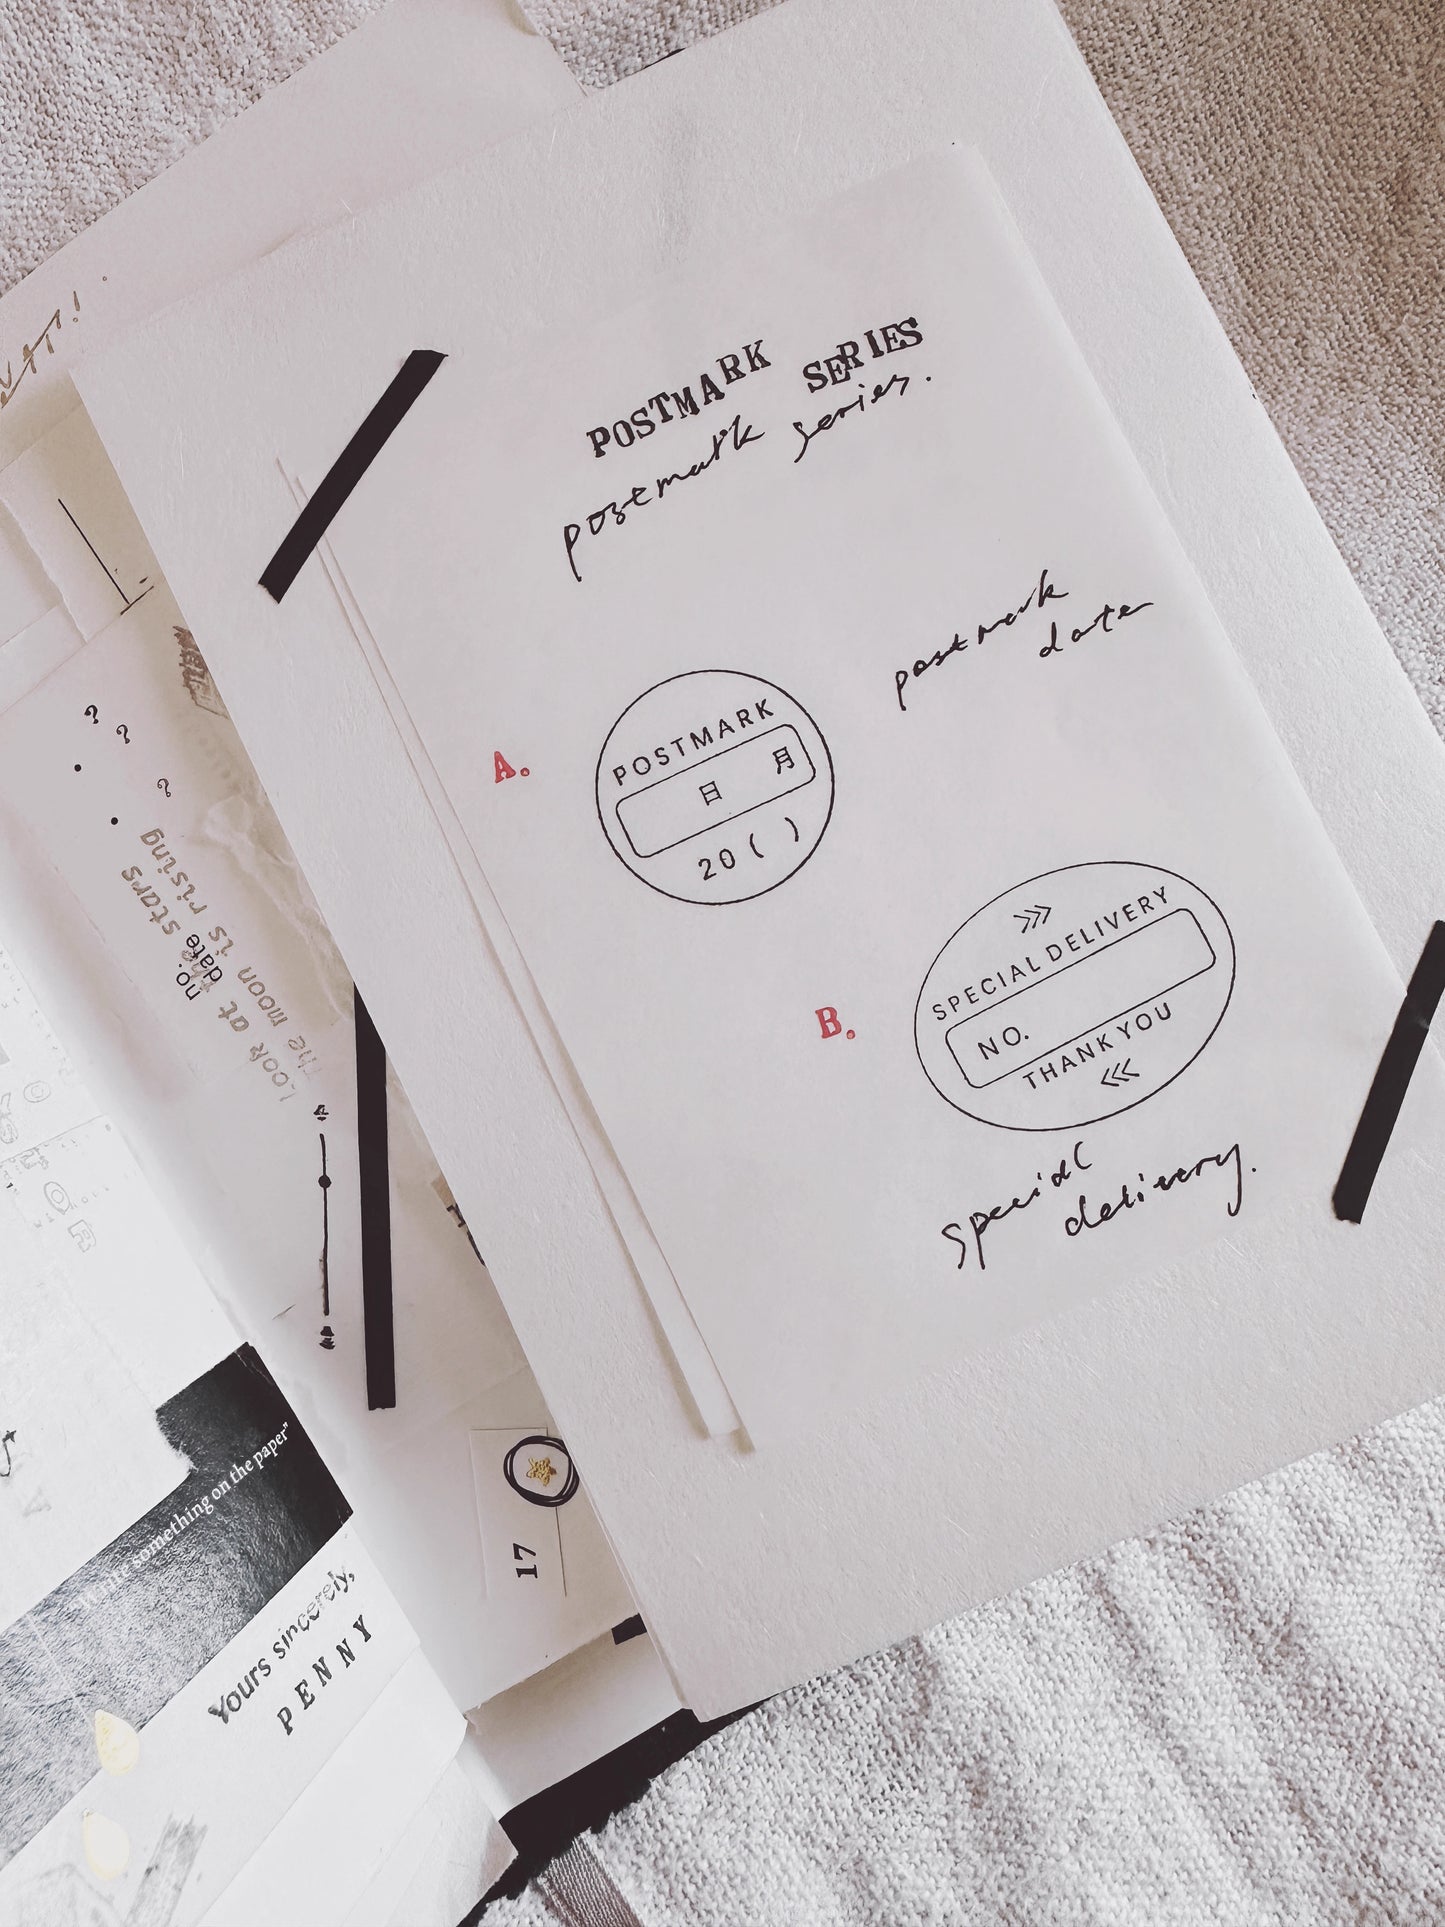 POSTMARK SERIES
postmark series.
postmark
date
A.
POSTMARK
日 月
20 ( )
B.
SPECIAL DELIVERY
NO.
THANK YOU
special
delivery.
? ? ?
Look at the stars
The moon is rising
no.
date
17
something on the paper"
Yours sincerely,
PENNY